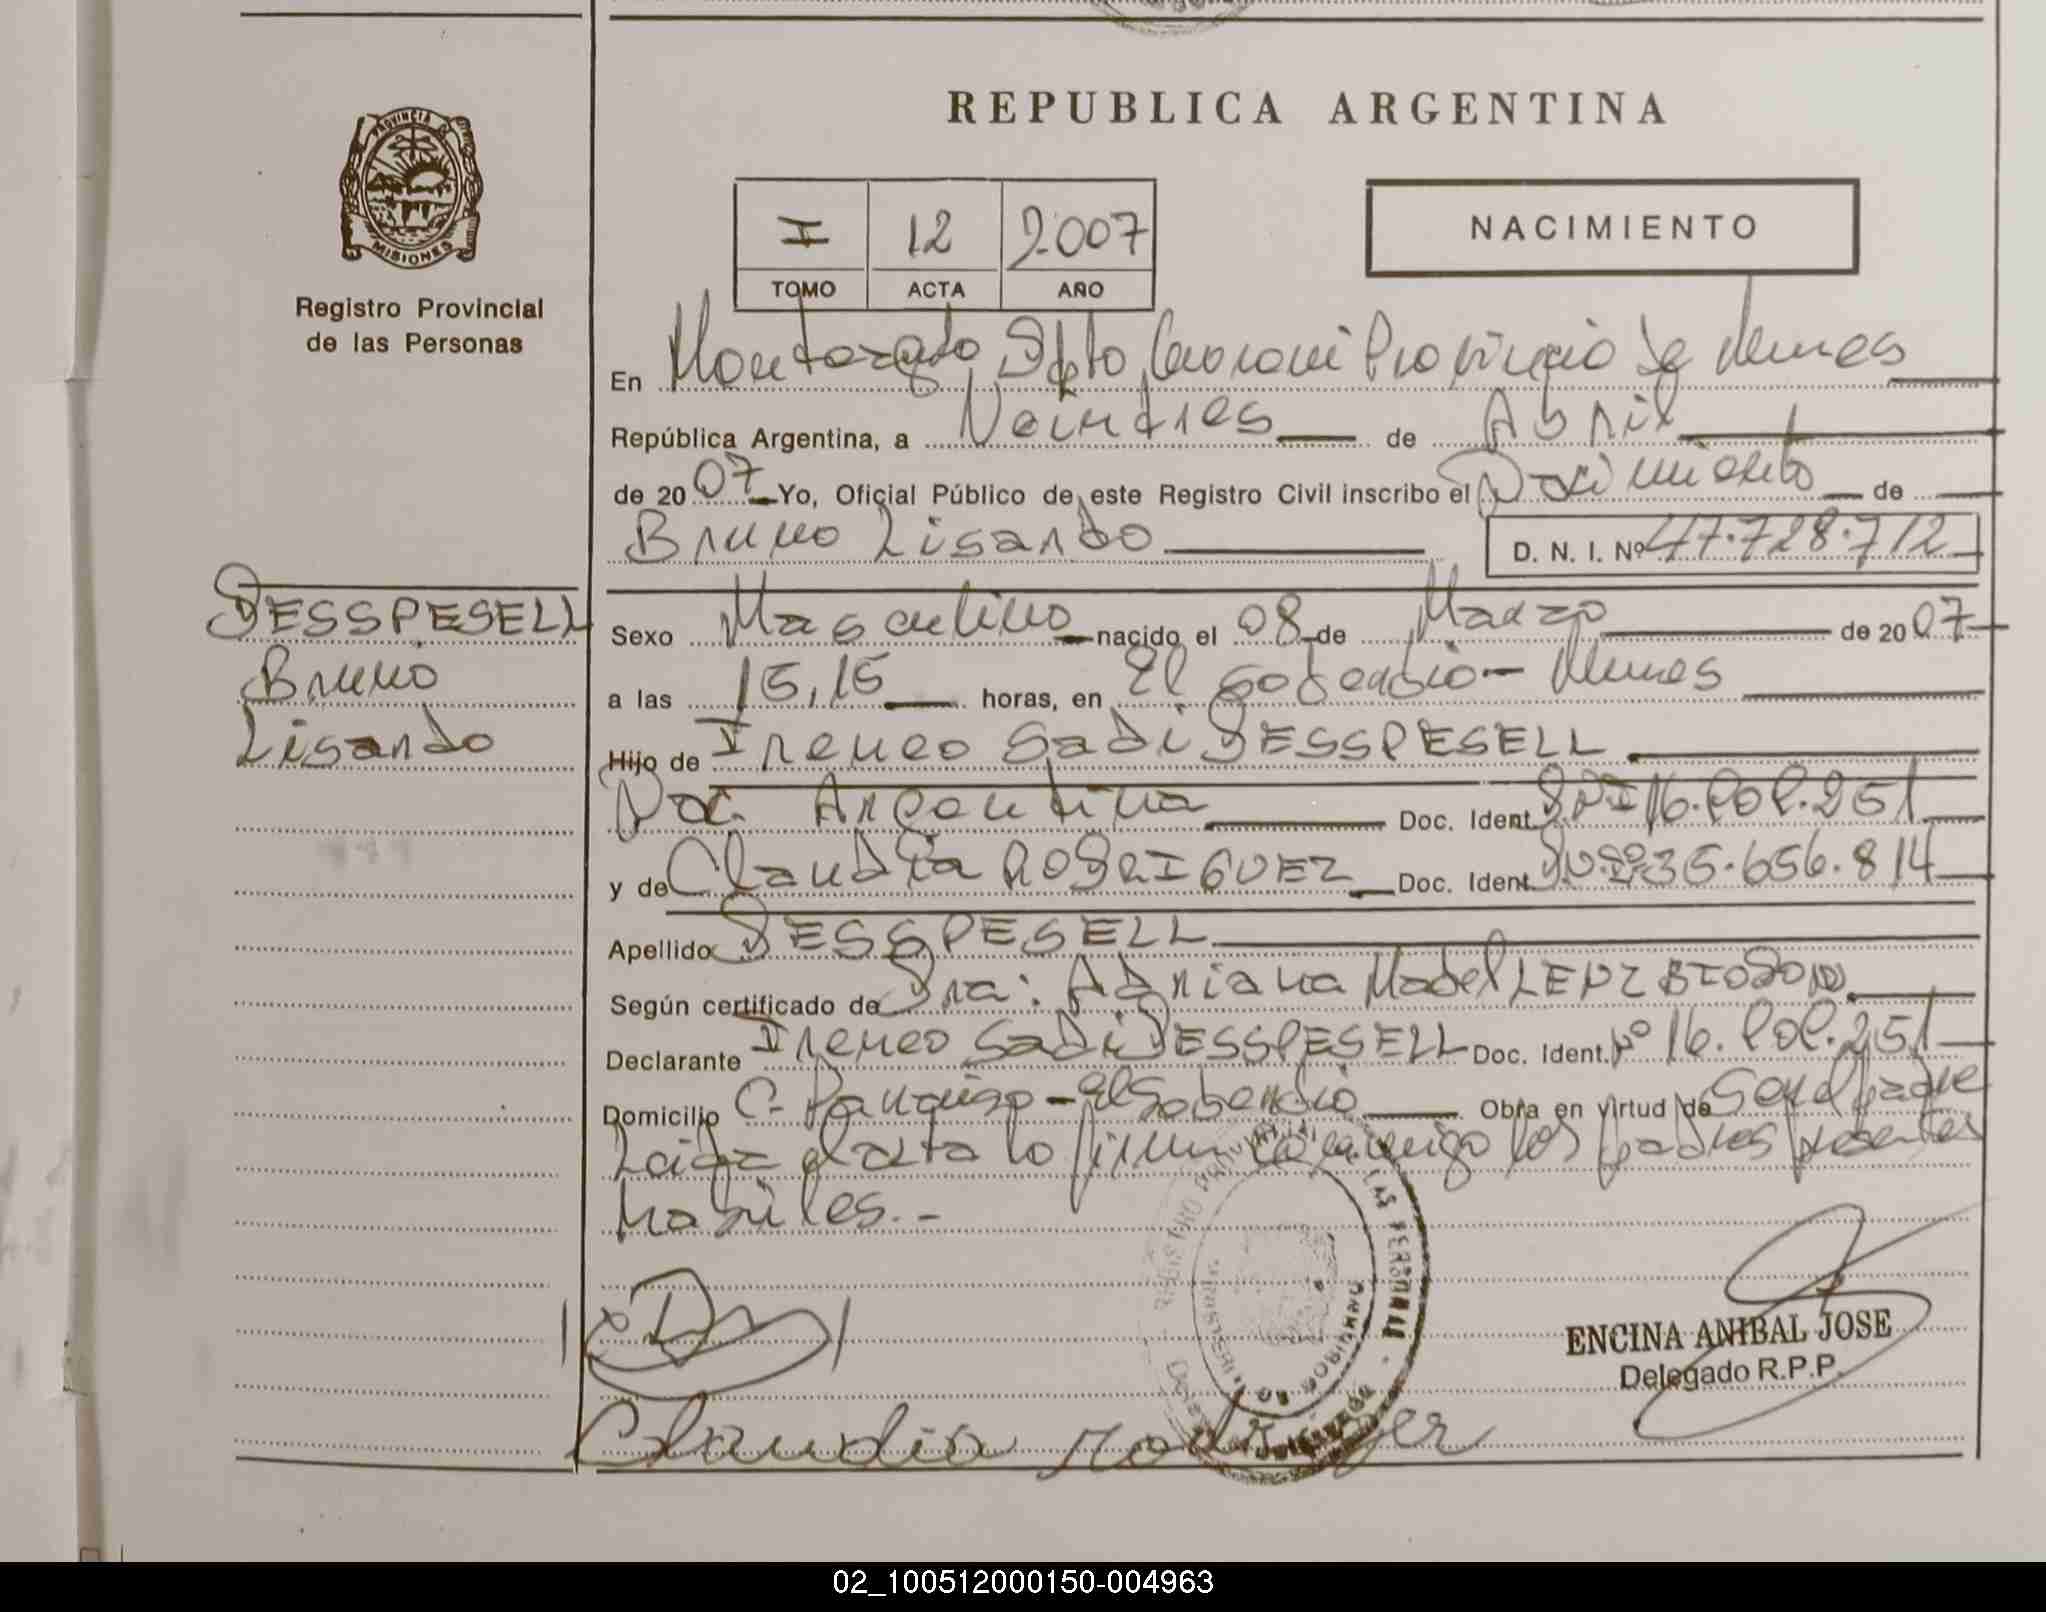 REPUBLICA ARGENTINA
PROVINCIA DE MISIONES
Registro Provincial
de las Personas
I 12 2007
TOMO ACTA AÑO
NACIMIENTO
En Dpto Guarani Provincia de
República Argentina, a Veintitres de Abril
de 2007 Yo, Oficial Público de este Registro Civil inscribo el Nacimiento de
Bruno Lisando D. N. I. Nº 47.728.712
DESSPESELL
Bruno
Lisando
Sexo Masculino nacido el 08 de Marzo de 2007
a las 15,15 horas, en El Soberbio - Mnes
Hijo de Ireneo Sadi DESSPESELL
Nac. Argentina Doc. Ident. DNI 16. .251
y de Claudia RODRIGUEZ Doc. Ident. 35.656.814
Apellido DESSPESELL
Según certificado de Dra: Adriana Mabel LENZ
Declarante Ireneo Sadi DESSPESELL Doc. Ident. Nº 16. .251
Domicilio C. Paraiso - El Soberbio Obra en virtud de ser el padre
Leida el acta lo firman conmigo los padres presentes
habiles.-
ENCINA ANIBAL JOSE
Delegado R.P.P.
Claudia rodriger
02_100512000150-004963